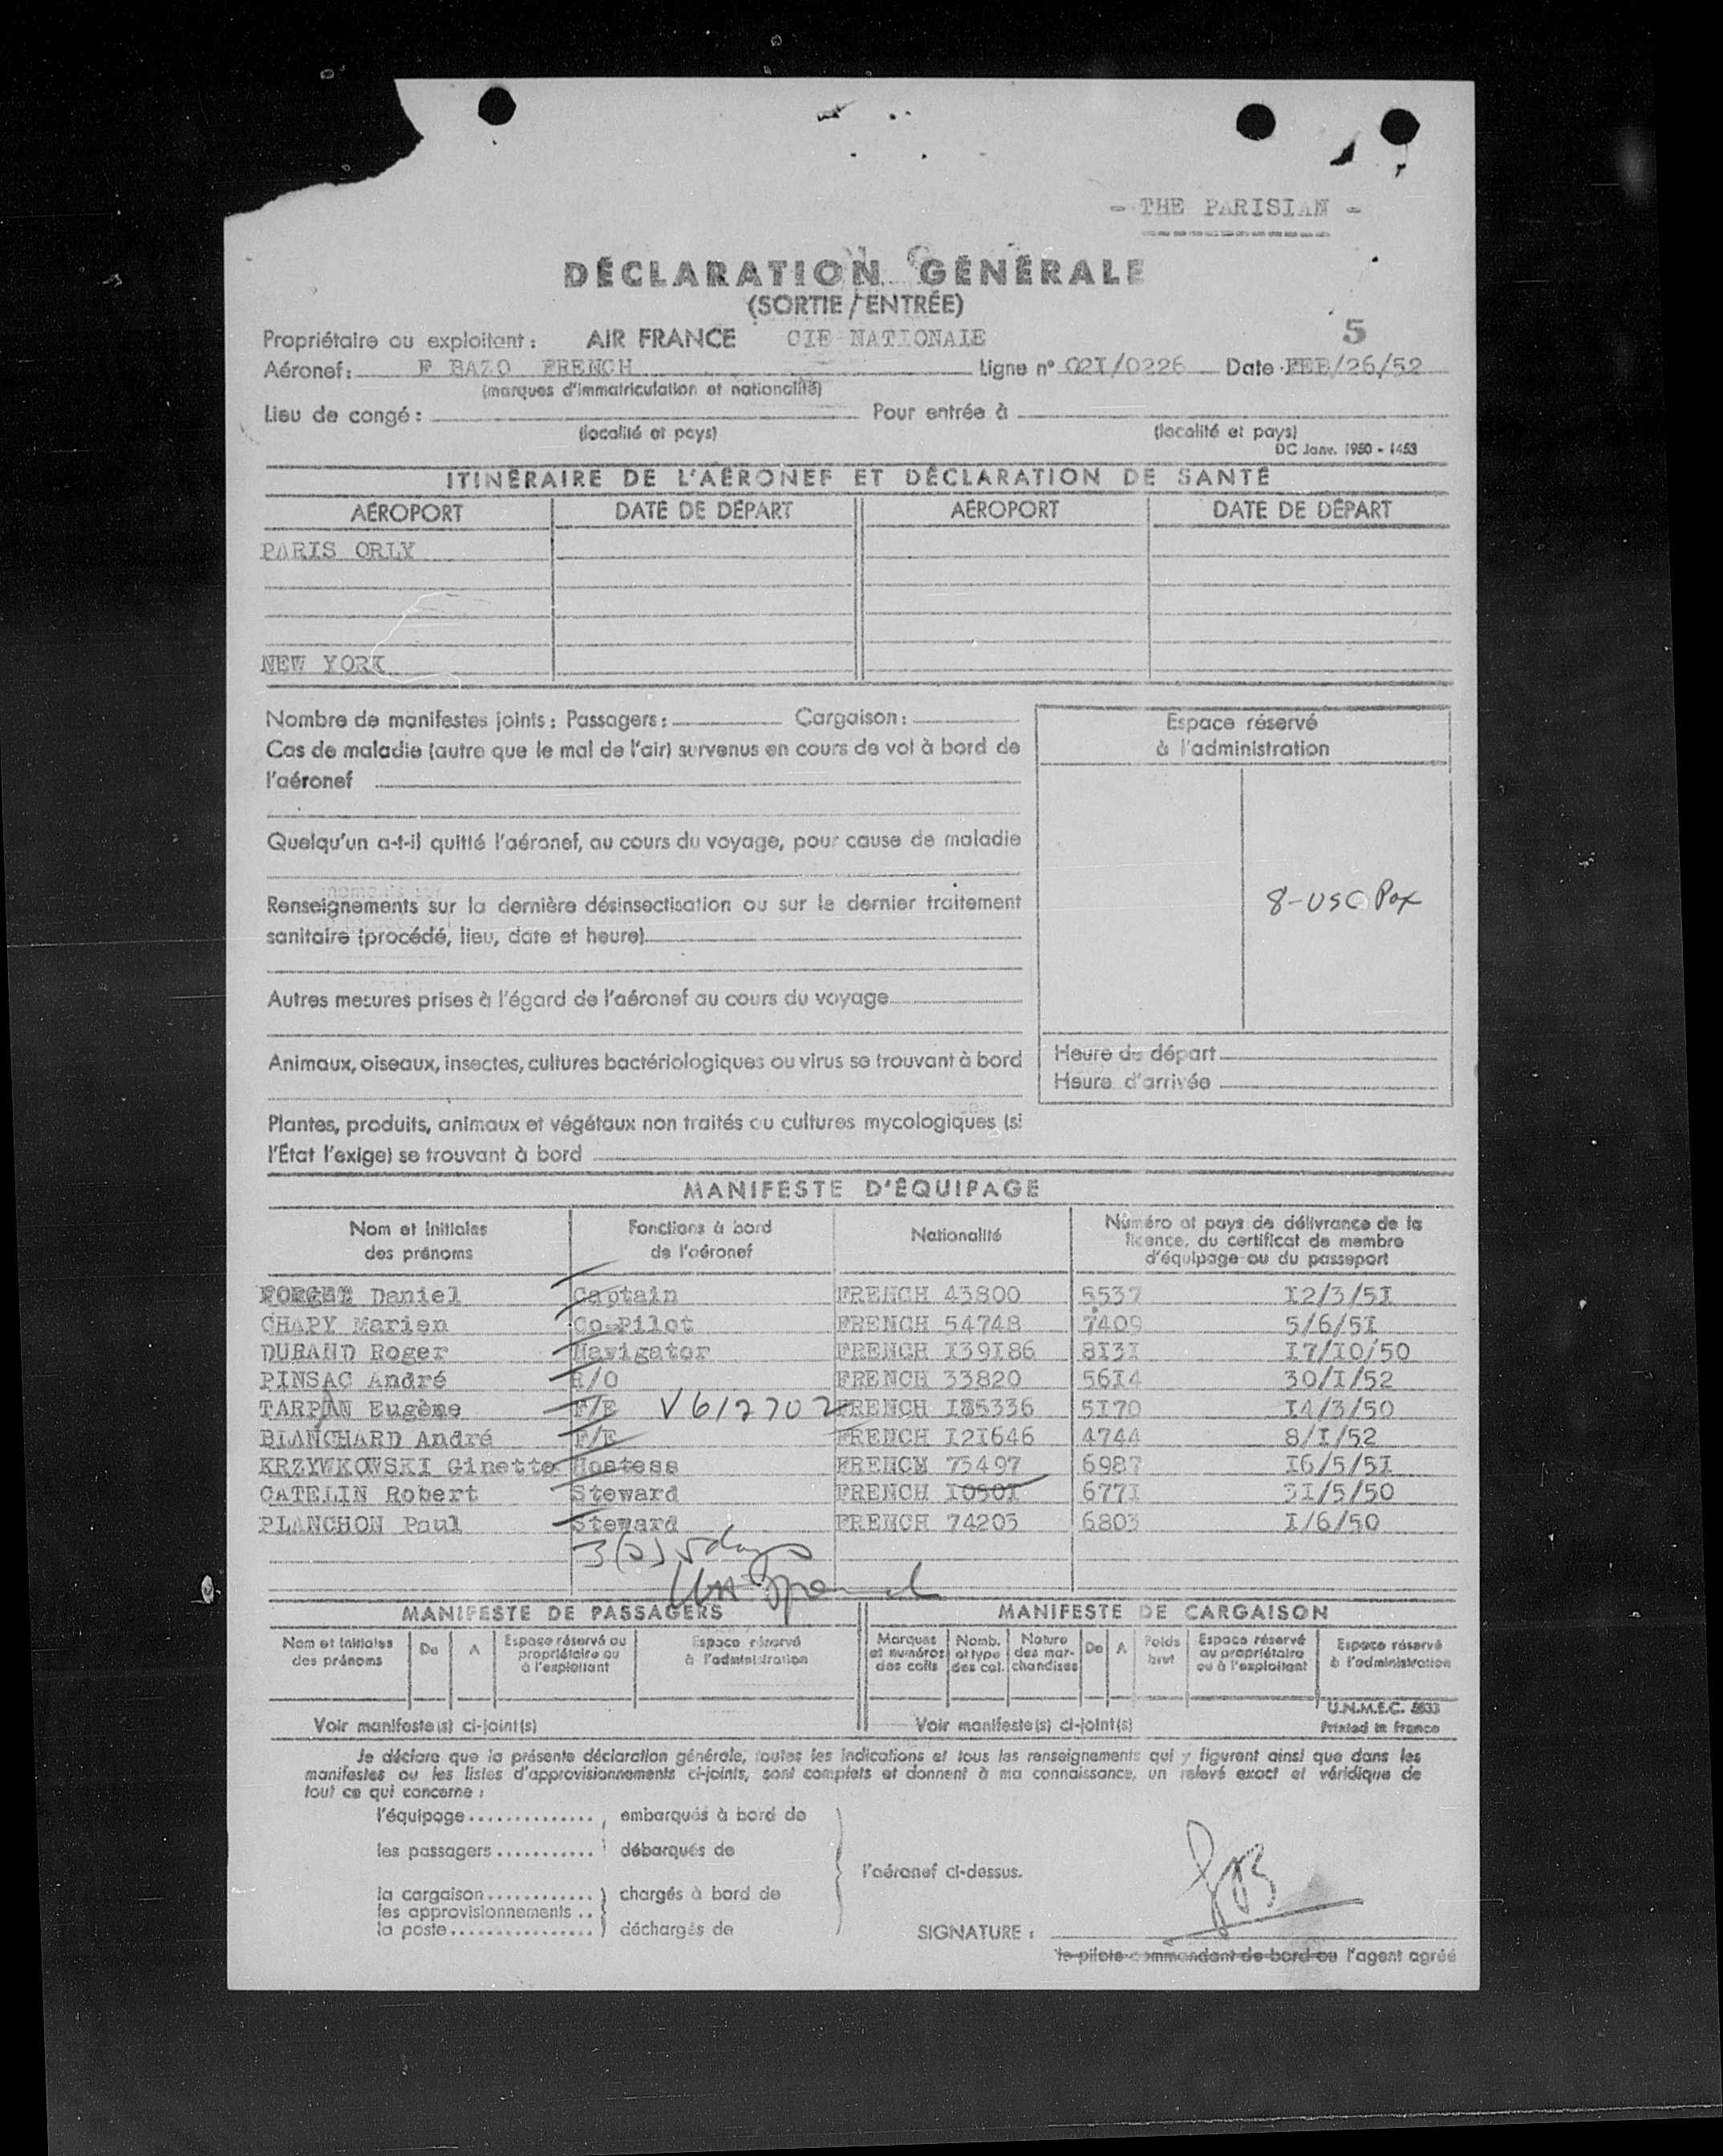 - THE PARISIAN -
DÉCLARATION GÉNÉRALE
(SORTIE / ENTRÉE)
5
Propriétaire ou exploitant : AIR FRANCE CIE NATIONALE
Aéronef : F BAZO FRENCH Ligne n° 02I/0226 Date FEB/26/52
(marques d'immatriculation et nationalité)
Lieu de congé : Pour entrée à
(localité et pays) (localité et pays)
DC Janv. 1950 - 1453
ITINÉRAIRE DE L'AÉRONEF ET DÉCLARATION DE SANTÉ
AÉROPORT DATE DE DÉPART AÉROPORT DATE DE DÉPART
PARIS ORLY
NEW YORK
Nombre de manifestes joints : Passagers : Cargaison :
Cas de maladie (autre que le mal de l'air) survenus en cours de vol à bord de
l'aéronef
Quelqu'un a-t-il quitté l'aéronef, au cours du voyage, pour cause de maladie
Renseignements sur la dernière désinsectisation ou sur le dernier traitement
sanitaire (procédé, lieu, date et heure)
Autres mesures prises à l'égard de l'aéronef au cours du voyage
Animaux, oiseaux, insectes, cultures bactériologiques ou virus se trouvant à bord
Plantes, produits, animaux et végétaux non traités ou cultures mycologiques (si
l'État l'exige) se trouvant à bord
Espace réservé
à l'administration
8-USC Pax
Heure de départ
Heure d'arrivée
MANIFESTE D'ÉQUIPAGE
Nom et Initiales des prénoms Fonctions à bord de l'aéronef Nationalité Numéro et pays de délivrance de la licence, du certificat de membre d'équipage ou du passeport
FORGET Daniel Captain FRENCH 43800 5537 I2/3/5I
CHAPY Marien Co-Pilot FRENCH 54748 7409 5/6/5I
DURAND Roger Navigator FRENCH I39I86 8I3I I7/I0/50
PINSAC André R/O FRENCH 33820 56I4 30/I/52
TARPIN Eugène F/E V612702 FRENCH I85336 5I70 I4/3/50
BLANCHARD André F/E FRENCH I2I646 4744 8/I/52
KRZYWKOWSKI Ginette Hostess FRENCH 75497 6987 I6/5/5I
CATELIN Robert Steward FRENCH I050I 677I 3I/5/50
PLANCHON Paul Steward FRENCH 74205 6803 I/6/50
3(5) 5 days
MANIFESTE DE PASSAGERS MANIFESTE DE CARGAISON
Nom et Initiales des prénoms De A Espace réservé au propriétaire ou à l'exploitant Espace réservé à l'administration Marques et numéros des colis Nomb. et type des col. Nature des marchandises De A Poids brut Espace réservé au propriétaire ou à l'exploitant Espace réservé à l'administration
Voir manifeste(s) ci-joint(s) Voir manifeste(s) ci-joint(s)
U.N.M.E.C. 5833
Printed in France
Je déclare que la présente déclaration générale, toutes les indications et tous les renseignements qui y figurent ainsi que dans les
manifestes ou les listes d'approvisionnements ci-joints, sont complets et donnent à ma connaissance, un relevé exact et véridique de
tout ce qui concerne :
l'équipage .............. , embarqués à bord de
les passagers ........... débarqués de
l'aéronef ci-dessus.
la cargaison ............ chargés à bord de
les approvisionnements ..
la poste ................ déchargés de
SIGNATURE :
le pilote commandant de bord ou l'agent agréé